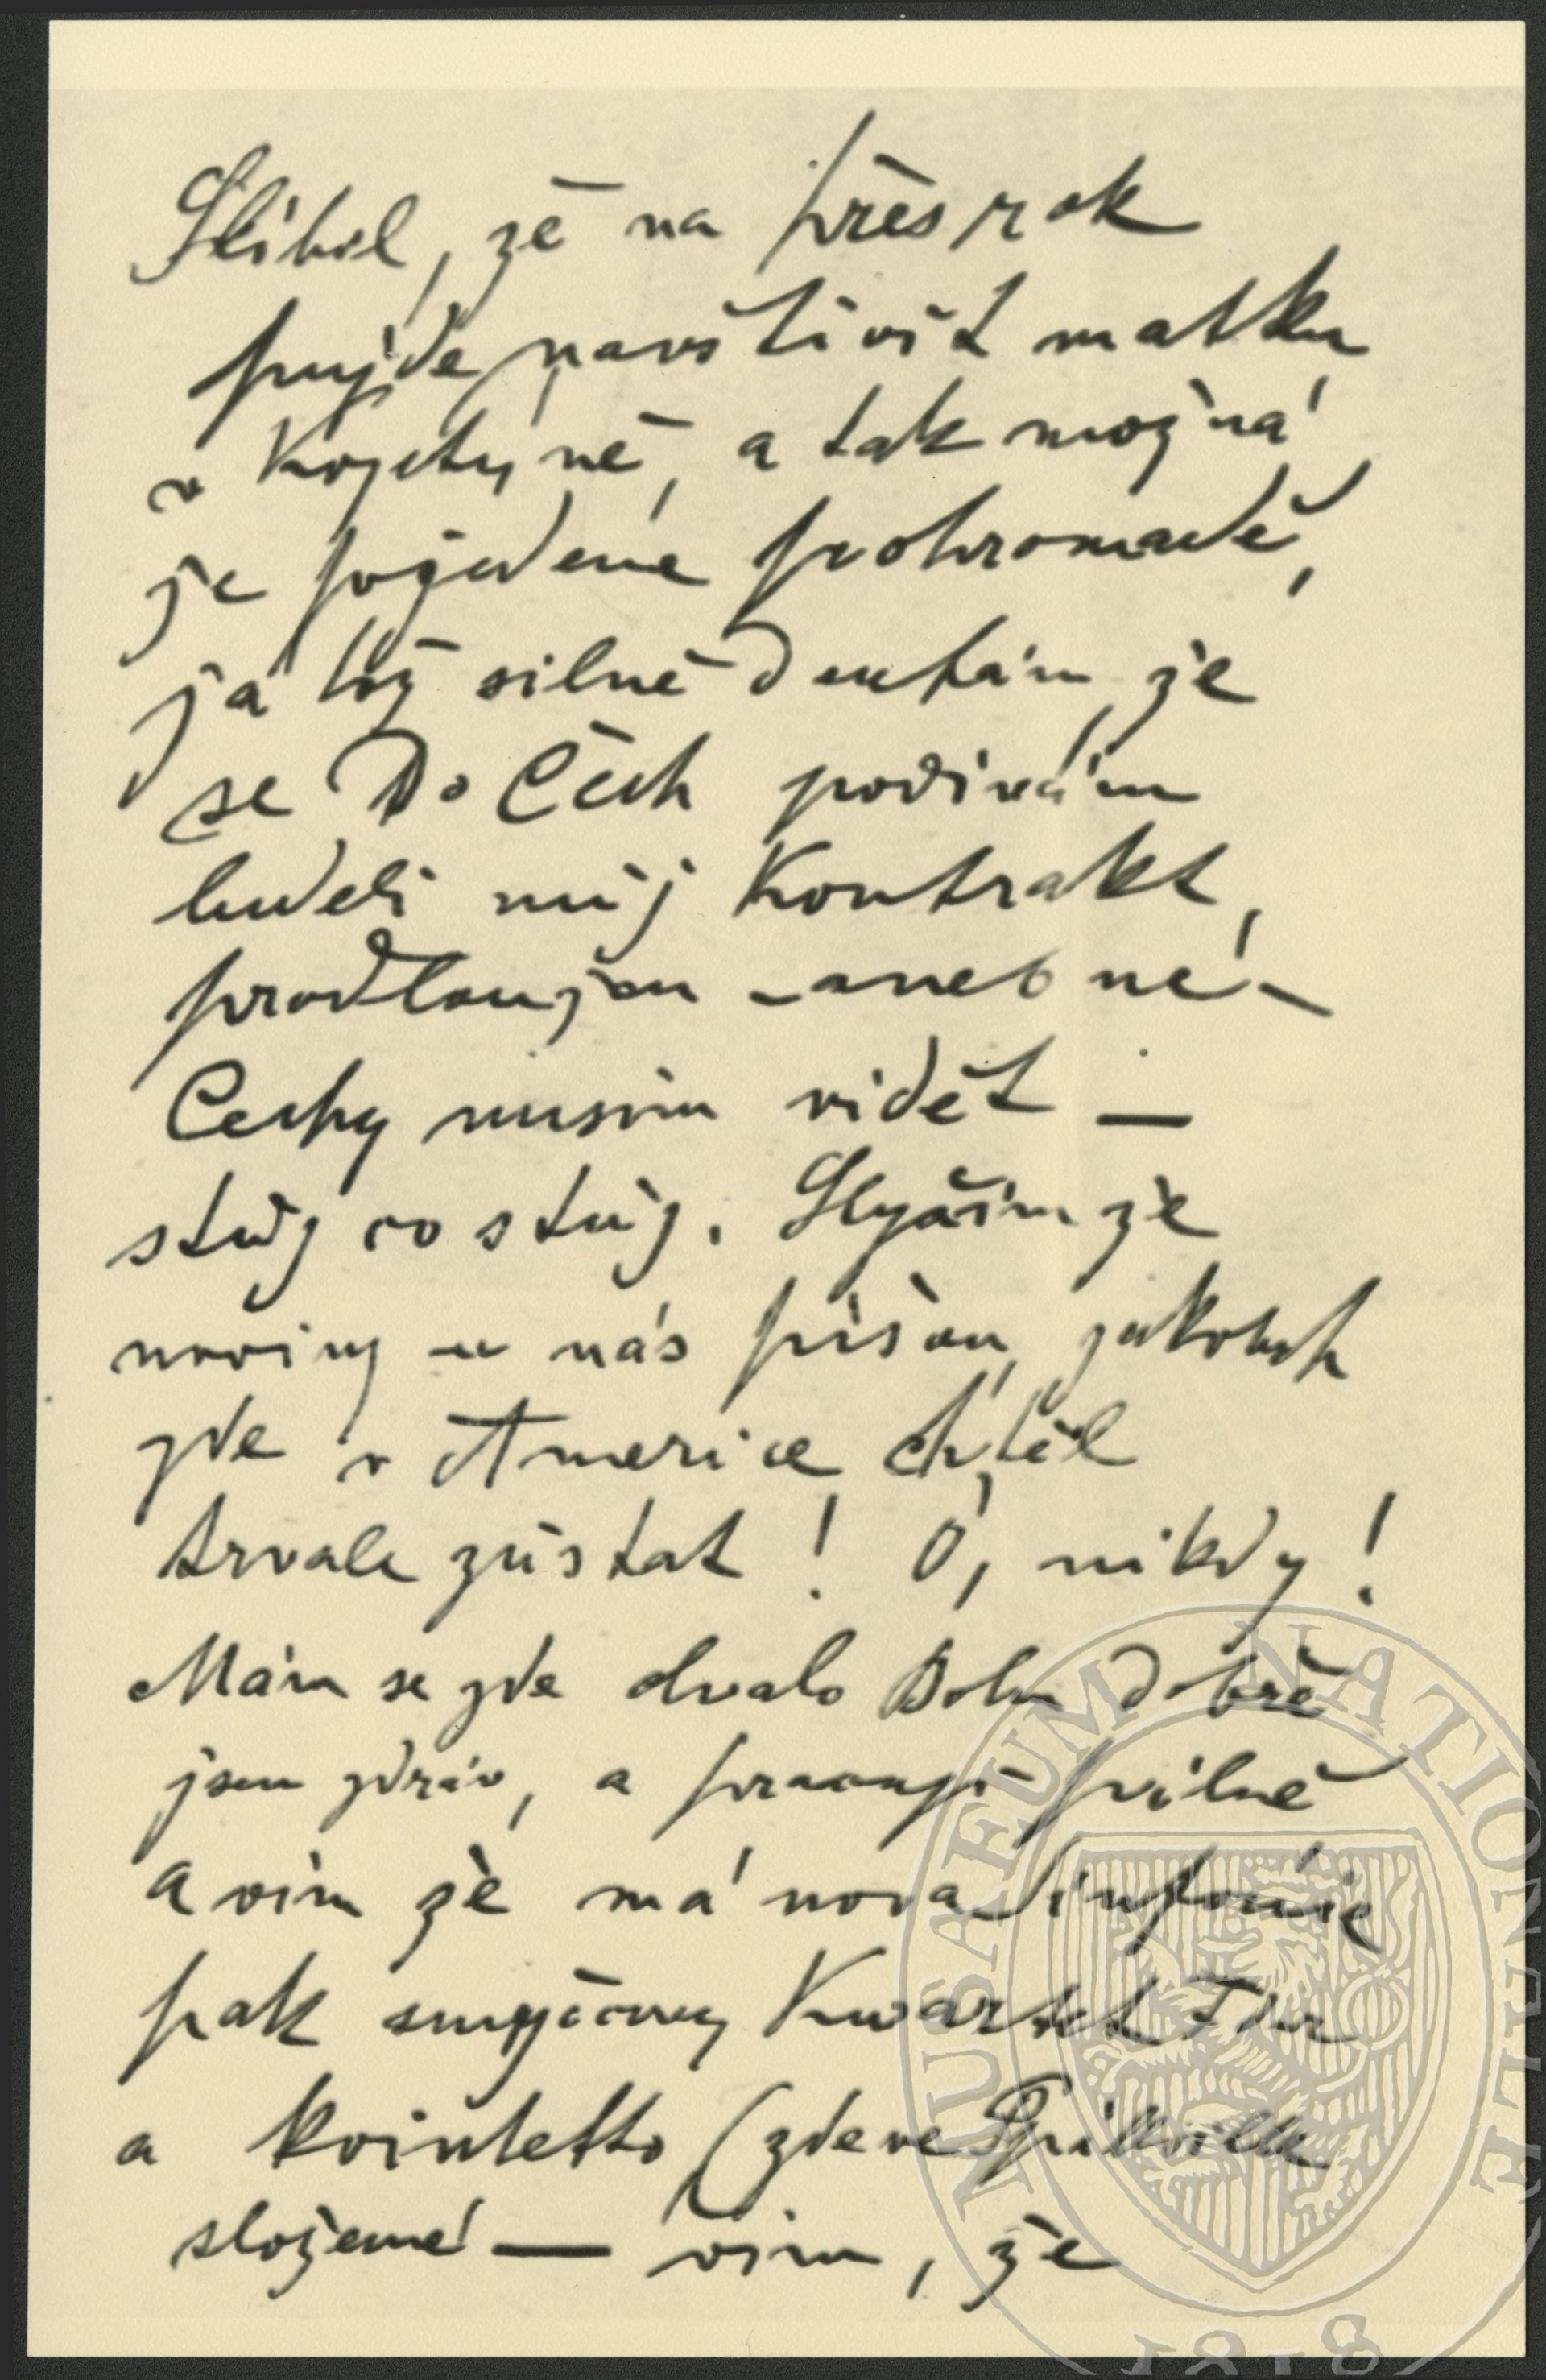 Slíbil, že na přes rok
pujde navštívit matku
v Kojetyně, a tak možná
že pojedeme pohromadě,
já též silně doufám, že
se do Čech podívám
budeli můj Kontrakt,
prodloužen – aneb ne –
Čechy musím vidět –
stůj co stůj. Slyším že
noviny u nás píšou, jakobch
zde v Americe chtěl
trvale zůstat! O, nikdy!
Mám se zde chvalo Bohu dobře
jsem zdráv, a pracuji pilně
a vím že má nova Sinfonie
pak smyčcovy Kwartet F dur
a kvintetto (zde ve Spillville
složené – vím, že
MUSAEUM NATIONALE
1818